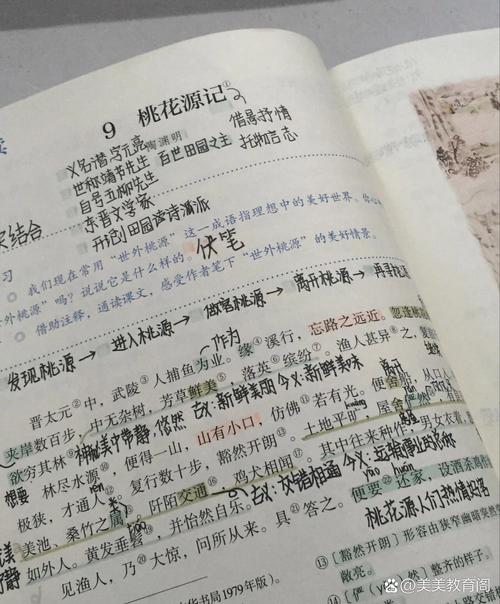 读
9 桃花源记①
陶渊明
又名潜 字元亮
世称靖节先生
自号五柳先生
东晋文学家
百世田园之主
开创田园诗派
借景抒情
托物言志
结合
习
我们现在常用“世外桃源”这一成语指理想中的美好世界。你心
外桃源”吗？说说它是什么样的。
伏笔
借助注释，通读课文，感受作者笔下“世外桃源”的美好情景。
发现桃源→进入桃源→做客桃源→离开桃源→再寻桃
作为
晋太元②中，武陵③人捕鱼为业。缘④溪行，忘路之远近。忽逢
夹岸数百步，中无杂树，芳草鲜美⑤，落英⑥缤纷⑦。渔人甚异⑧之，
古义：新鲜美丽 今义：新鲜味美
欲穷其林⑨
林尽水源，便得一山，山有小口，仿佛⑪若有光。便舍船，从口
离开
想要
极狭，才通人。复行数十步，豁然开朗⑬。土地平旷，屋舍俨然
美池，桑竹之属，阡陌交通，鸡犬相闻。其中往来种作，男女衣着
古义：交错相通 今义：运输事业的总称
如外人。黄发垂髫，并怡然自乐。
见渔人，乃大惊，问所从来。具答之。便要还家，设酒杀鸡
yāo
huán
桃花源人们热情好客
⑬〔豁然开朗〕形容由狭窄幽暗突然
敞亮。
⑭〔俨（yǎn）然〕整齐的样子。
华书局1979年版）。
美美教育阁